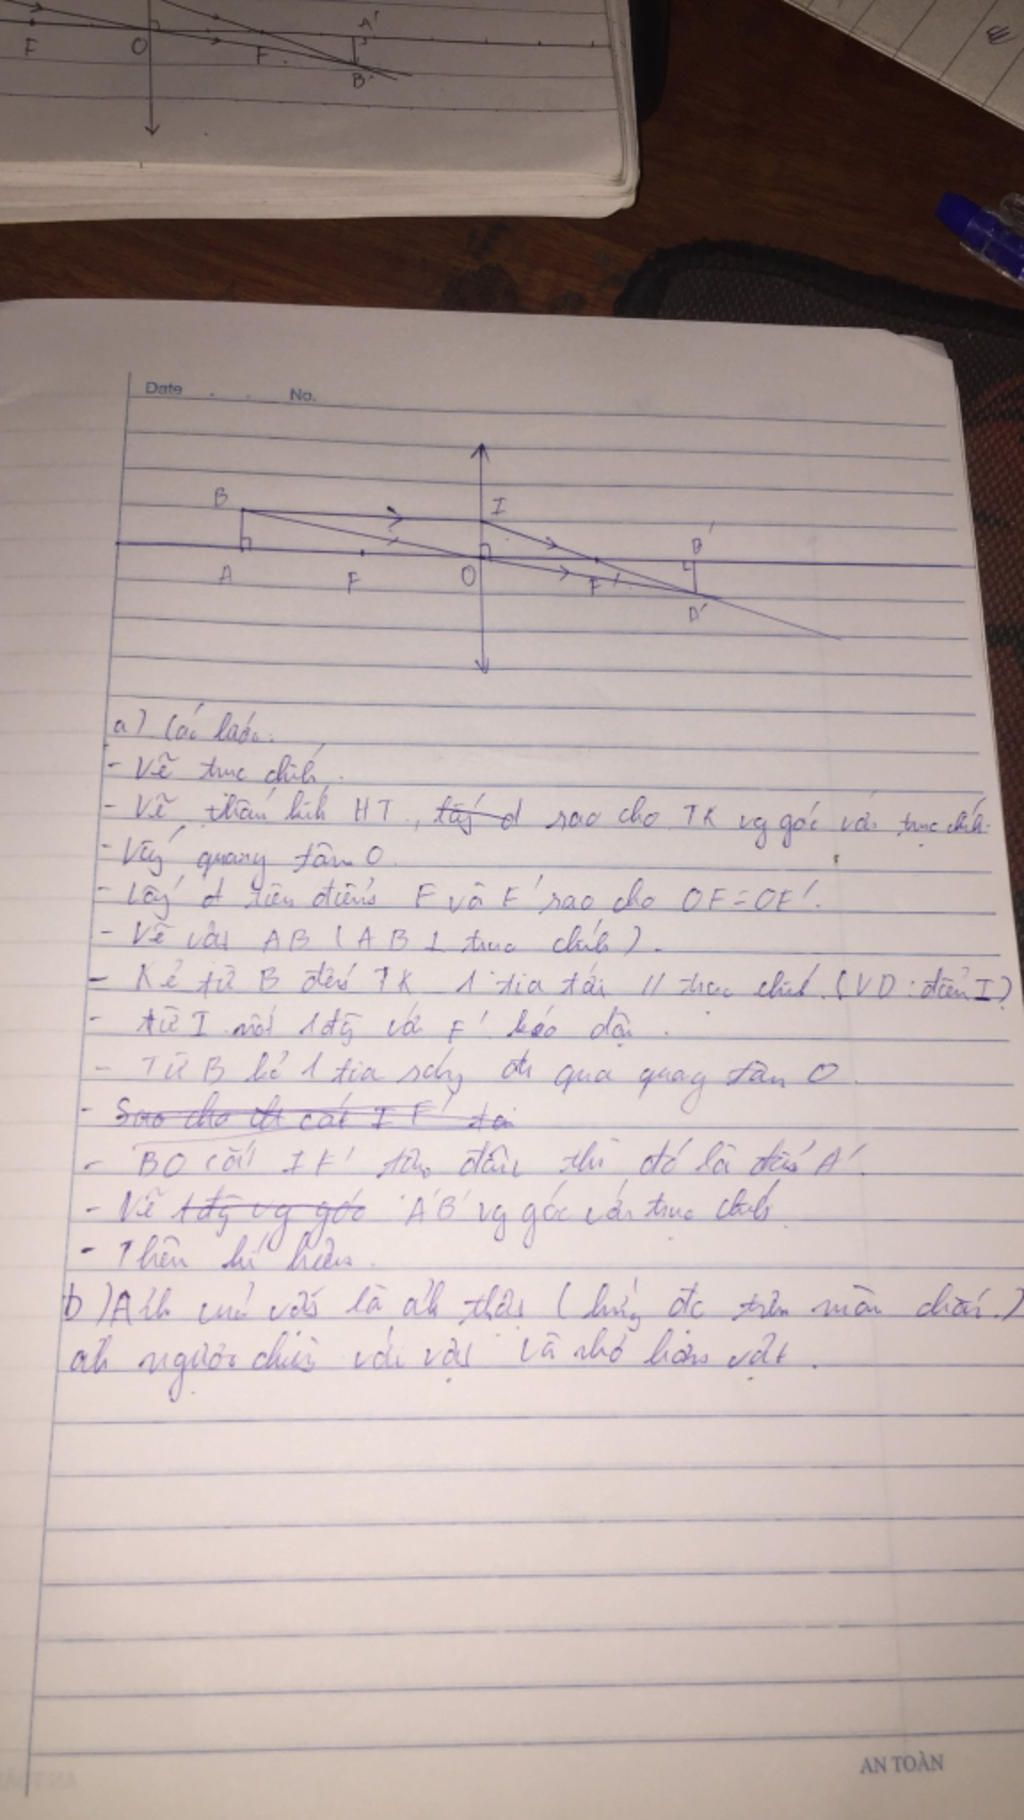 F
O
F
A'
B'
Date . . No.
B
I
B'
A
F
O
F'
A'
a) Các bước.
- Vẽ trục chính.
- Vẽ thấu kính HT, lấy d sao cho TK vg góc với trục chính.
- Lấy quang tâm O.
- Lấy d tiêu điểm F và F' sao cho OF = OF'.
- Vẽ vật AB (AB ⊥ trục chính).
- Kẻ từ B đến TK 1 tia tới // trục chính. (VD: điểm I)
- từ I nối 1 đg với F' kéo dài.
- Từ B kẻ 1 tia sáng đi qua quang tâm O.
- Sao cho cắt I F' tại
- BO cắt IF' tại đâu thì đó là điểm A'
- Vẽ 1 đg vg góc A'B' vg góc với trục chính
- Thêm kí hiệu.
b) Ảnh của vật là ảnh thật (hứng đc trên màn chắn.)
ảnh ngược chiều với vật và nhỏ hơn vật.
AN TOÀN